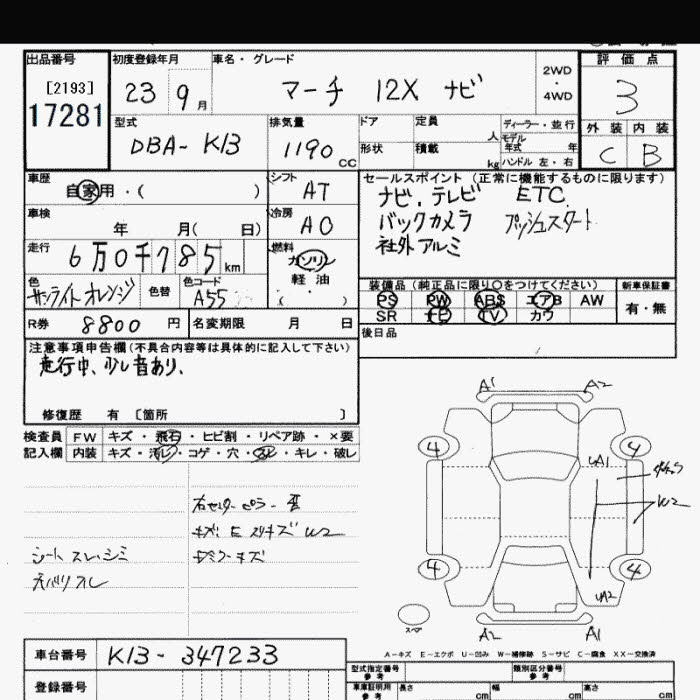 出品番号 初度登録年月 車名・グレード 評価点
[2193]
17281
23 9月 マーチ 12X ナビ 2WD・4WD 3
型式 排気量 ドア 定員 人 ディーラー・並行 外装 内装
モデル年式 年
DBA-K13 1190 CC 形状 積載 kg ハンドル 左・右 C B
車歴 自家用・( ) シフト AT セールスポイント (正常に機能するものに限ります)
ナビ、テレビ ETC
車検 年 月( 日) 冷房 AC バックカメラ プッシュスタート
走行 6万0千785km 燃料 ガソリン 社外アルミ
軽油
( )
色 サンライトオレンジ 色替 色コード A55
装備品 (純正品に限り○をつけてください) 新車保証書
PS PW ABS エアB AW 有・無
SR ナビ TV カワ
R券 8800円 名変期限 月 日
後日品
注意事項申告欄(不具合内容等は具体的に記入して下さい)
走行中、少し音あり、
修復歴 有 [箇所 ]
検査員記入欄 FW キズ・飛石・ヒビ割・リペア跡・×要
内装 キズ・汚レ・コゲ・穴・スレ・キレ・破レ
右センターピラー
シート スレ、シミ
A1 A2
4 4
UA1
W2
4 4
UA2
スペア
A2 A1
A-キズ E-エクボ U-凹み W-補修跡 S-サビ C-腐食 XX-交換済
車台番号 K13-347233
登録番号
型式指定番号 類別区分番号
車庫証明用参考 長さ cm 幅 cm 高さ cm
参考